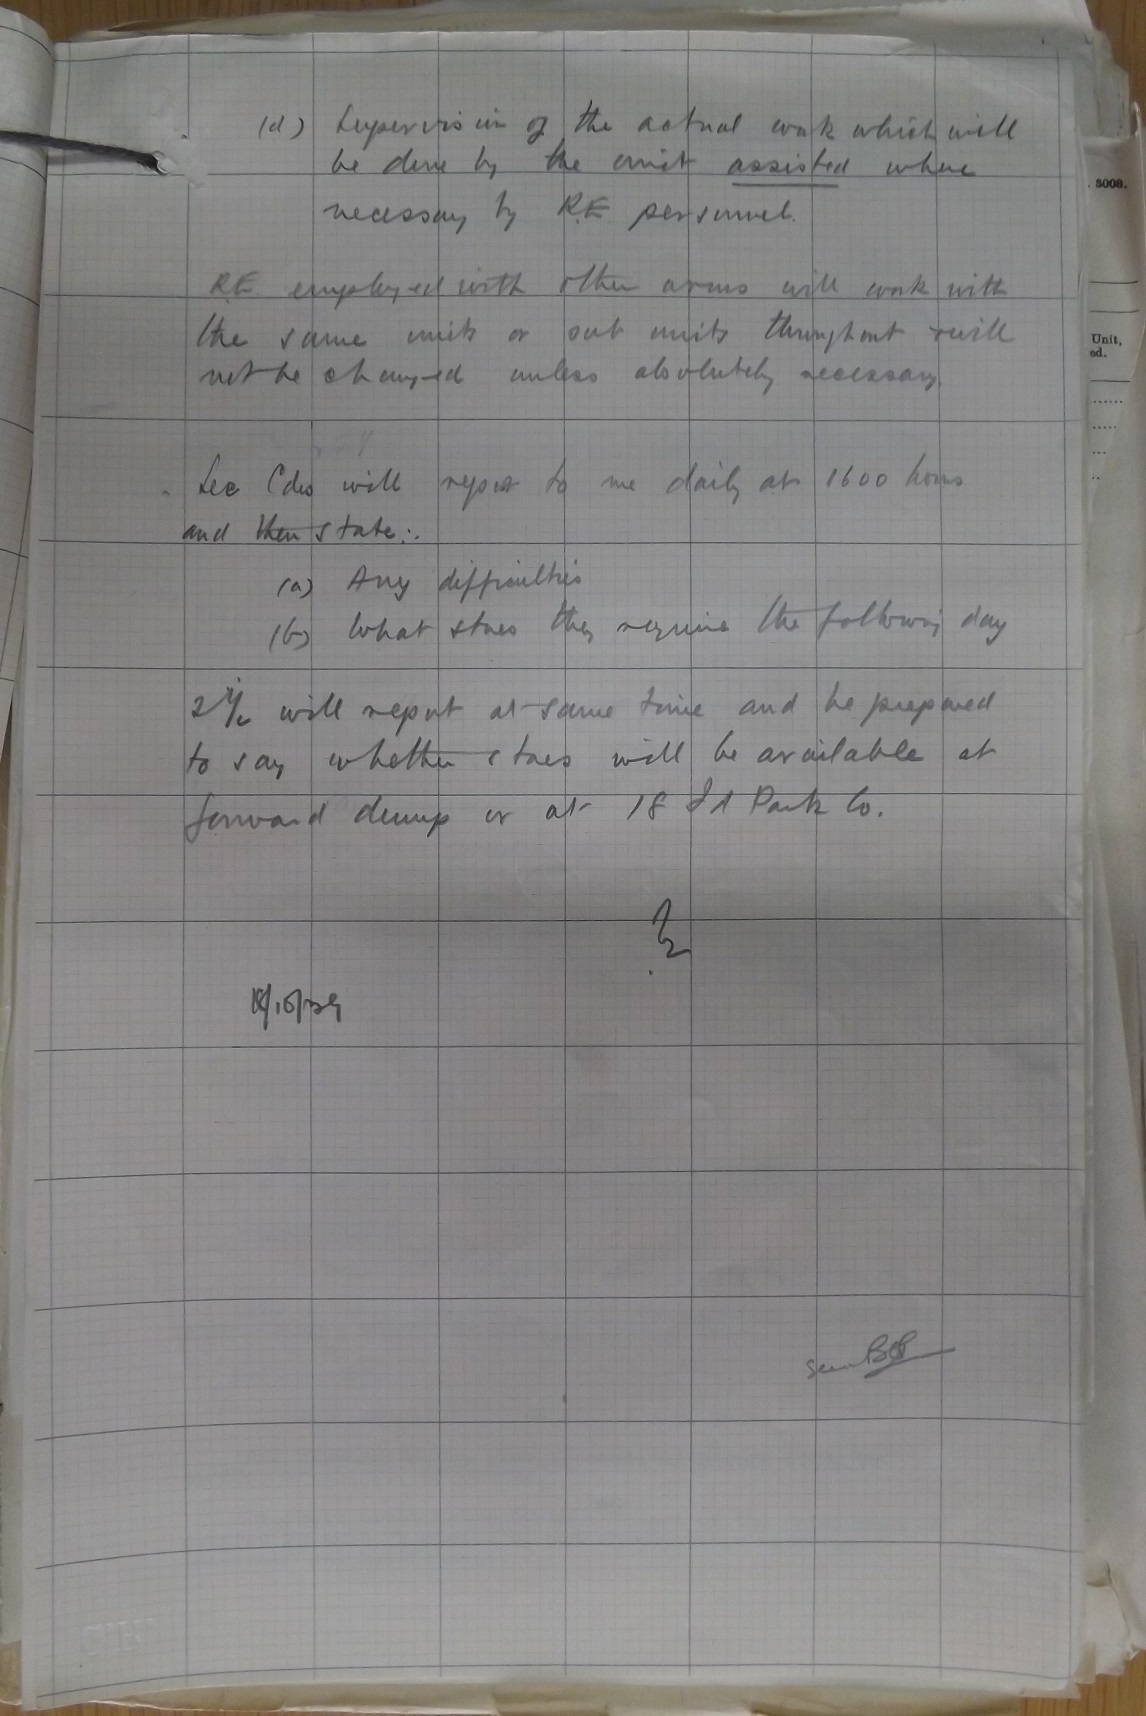 (d) Supervision of the actual work which will
be done by the unit assisted where
necessary by R.E personnel.
R.E. employed with other arms will work with
the same units or sub units throughout & will
not be changed unless absolutely necessary.
Sec Cdrs will report to me daily at 1600 hours
and then state:.
(a) Any difficulties
(b) What stores they require the following day
2 i/c will report at same time and be prepared
to say whether stores will be available at
forward dump or at 18 Fd Park Co.
/10/39
seen
3008.
Unit,
ed.